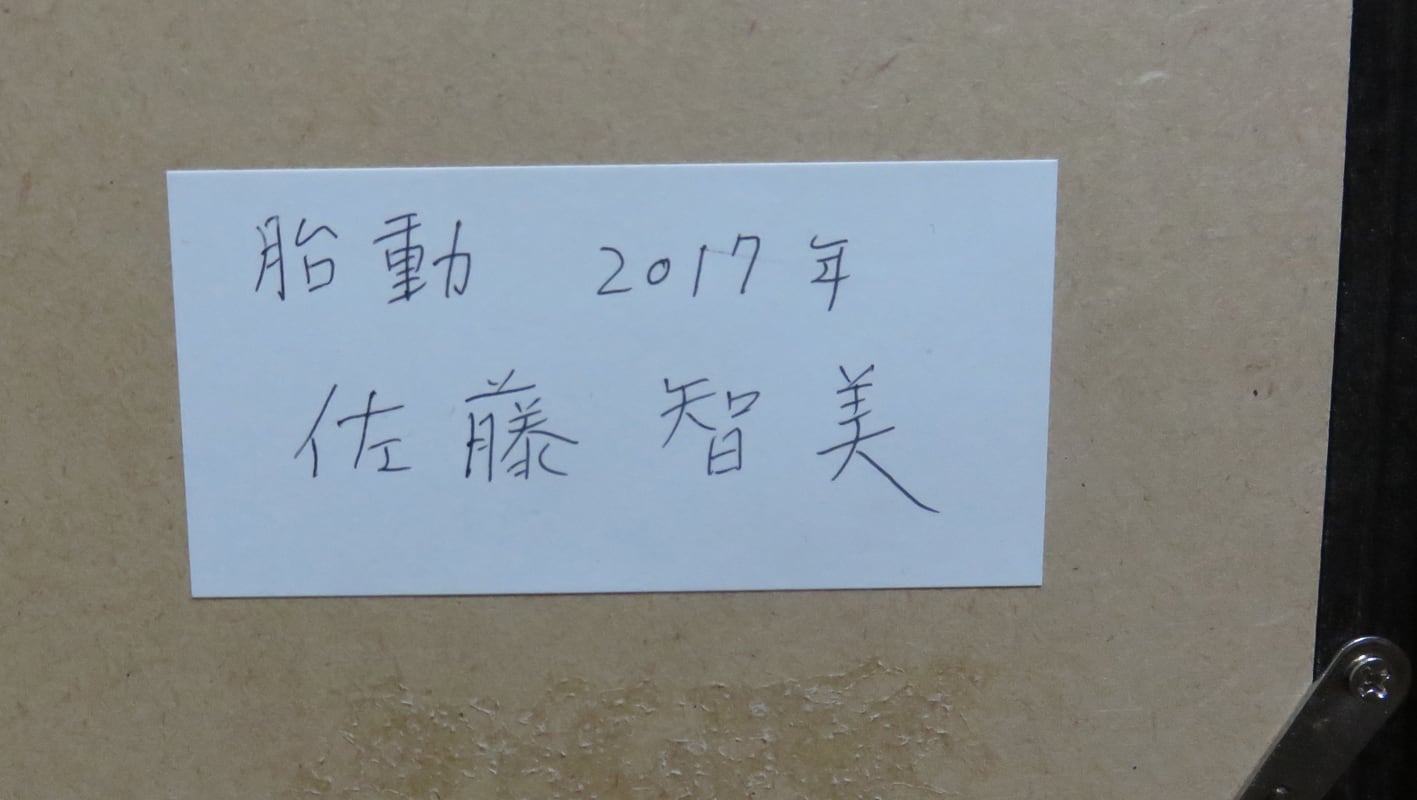 胎動 2017年
佐藤 智美